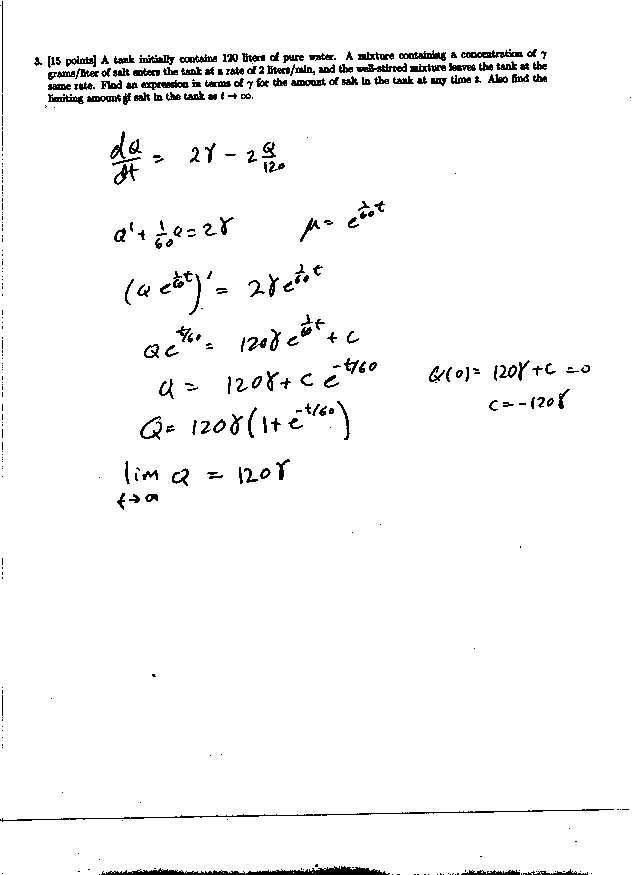 3. [15 points] A tank initially contains 120 liters of pure water. A mixture containing a concentration of γ
grams/liter of salt enters the tank at a rate of 2 liters/min, and the well-stirred mixture leaves the tank at the
same rate. Find an expression in terms of γ for the amount of salt in the tank at any time t. Also find the
limiting amount of salt in the tank as t → ∞.
dQ/dt = 2γ - 2 Q/120
Q' + 1/60 Q = 2γ    μ = e^{1/60 t}
(Q e^{1/60 t})' = 2γ e^{1/60 t}
Q e^{t/60} = 120γ e^{1/60 t} + C
Q = 120γ + C e^{-t/60}    Q(0) = 120γ + C = 0
C = -120γ
Q = 120γ(1 + e^{-t/60})
lim Q = 120γ
t→∞